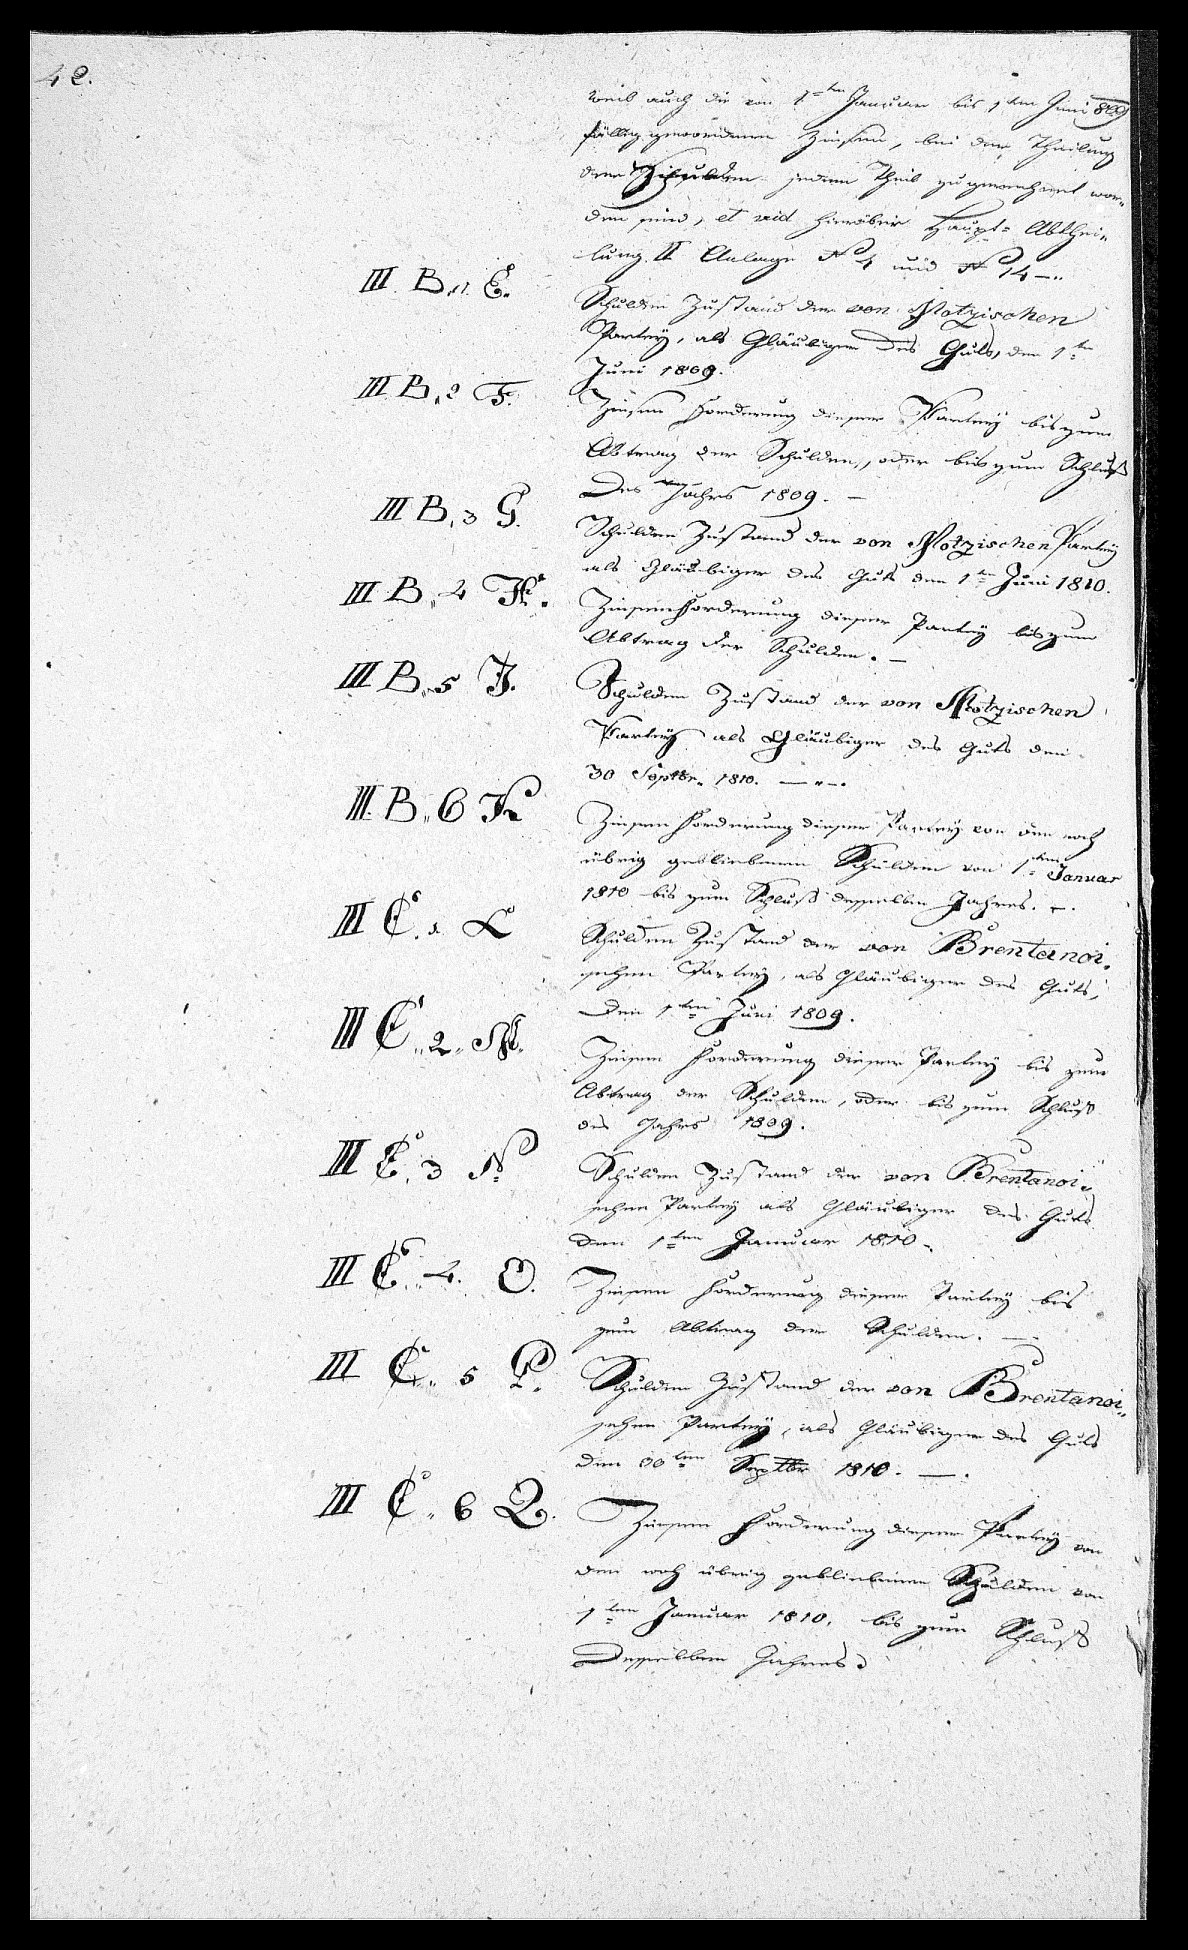 42.
weil auch die von 1ten Januar bis 1ten Juni 809
fällig gewordenen Zinsen, bei der Theilung
der Schulden jedem Theil zugerechnet wor-
den sind, et vid hierüber Haupt-Abthei-
lung II Anlage No 4 und No 14 —.
III. B. 1. E.
Schulden Zustand der von Motzischen
Partey, als Gläubiger des Guts, den 1ten
Juni 1809.
III B. 2 F.
Zinsen Forderung dieser Partey bis zum
Abtrag der Schulden, oder bis zum Schluß
Des Jahrs 1809. —
III B. 3 G.
Schulden Zustand der von Motzischen Partey
als Gläubiger des Guts den 1ten Juni 1810.
III B. 4 H.
Zinsen Forderung dieser Partey bis zum
Abtrag der Schulden. —
III B. 5 J.
Schulden Zustand der von Motzischen
Partey als Gläubiger des Guts den
30 Septbr. 1810. —
III. B. 6 K
Zinsen Forderung dieser Partey von den noch
übrig gebliebenen Schulden von 1ten Januar
1810 bis zum Schluß desselben Jahres. —.
III C. 1. L
Schulden Zustand der von Brentanoi-
schen Partey, als Gläubiger des Guts,
Den 1ten Juni 1809.
III C. 2. M.
Zinsen Forderung dieser Partey bis zum
Abtrag der Schulden, oder bis zum Schluß
des Jahrs 1809.
III C. 3 N.
Schulden Zustand der von Brentanoi-
schen Partey als Gläubiger des Guts
den 1ten Januar 1810.
III C. 4. O.
Zinsen Forderung dieser Partey bis
zum Abtrag der Schulden. —
III C. 5 P.
Schulden Zustand der von Brentanoi-
schen Partey, als Gläubiger des Guts
den 30ten Septbr 1810. —.
III C. 6 Q.
Zinsen Forderung dieser Partey von
den noch übrig gebliebenen Schulden von
1ten Januar 1810. bis zum Schluß
Desselben Jahres.